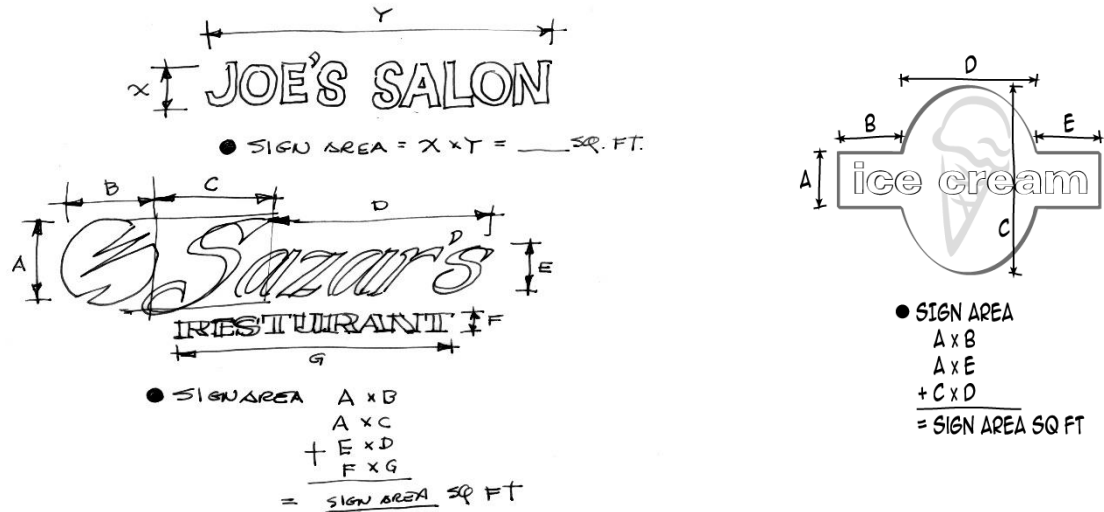 Y
X
JOE'S SALON
● SIGN AREA = X x Y = ___ SQ. FT.
B
C
D
A
Sazar's
E
RESTURANT
F
G
● SIGN AREA A x B
A x C
+ E x D
F x G
= SIGN AREA SQ FT
D
B
E
A
ice cream
C
● SIGN AREA
A x B
A x E
+ C x D
= SIGN AREA SQ FT